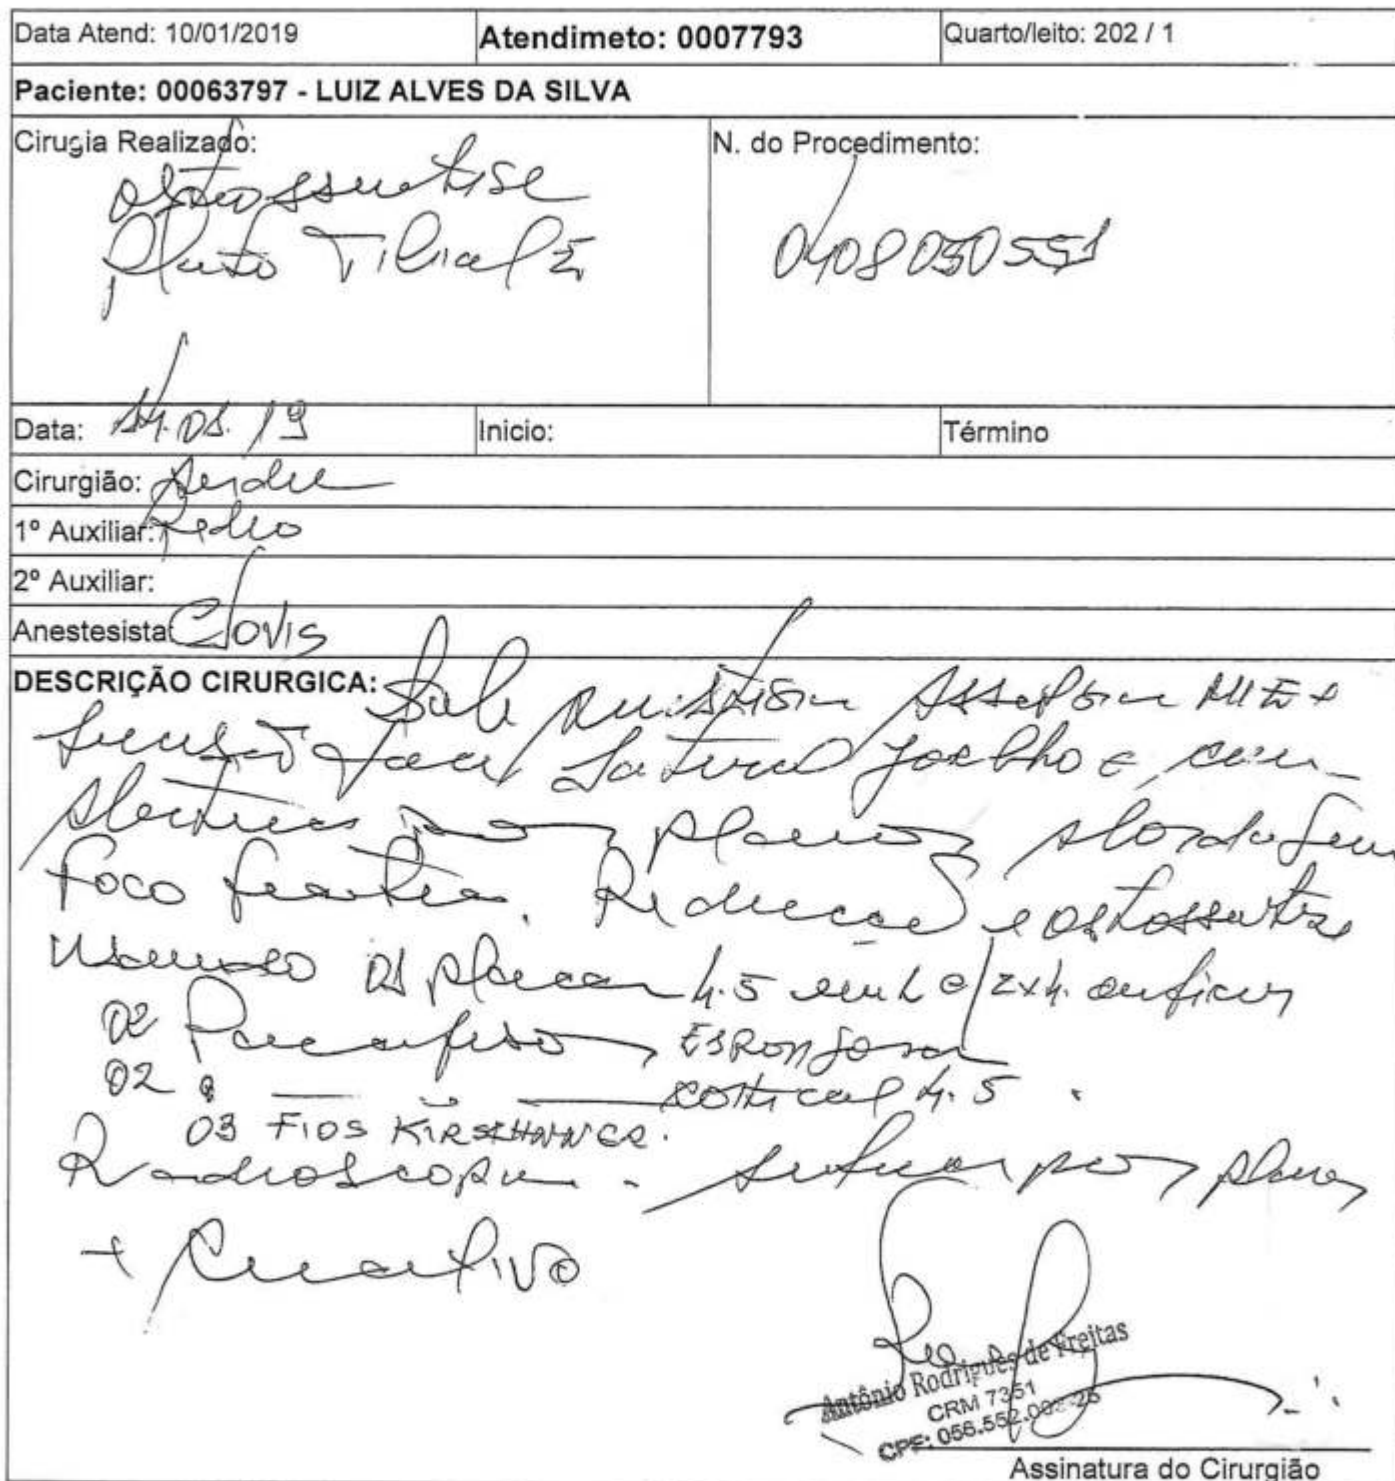 Data Atend: 10/01/2019 Atendimeto: 0007793 Quarto/leito: 202 / 1
Paciente: 00063797 - LUIZ ALVES DA SILVA
Cirugia Realizado: N. do Procedimento:
osteossíntese
plato Tibial E 0408050551
Data: 14.01.19 Inicio: Término
Cirurgião:
1º Auxiliar: Pedro
2º Auxiliar:
Anestesista: Clovis
DESCRIÇÃO CIRURGICA: Sob MIE +
face lateral joelho e
por planos
foco fratura. Redução e osteossíntese
01 placa 4.5 em L c/ 2x4
02 Parafusos Esponjosa
02 cortical 4.5.
03 FIOS KIRSCHNNER.
Radioscopia - sutura por planos
+ Curativo
Antônio Rodrigues de Freitas
CRM 7351
CPF: 056.552.
Assinatura do Cirurgião